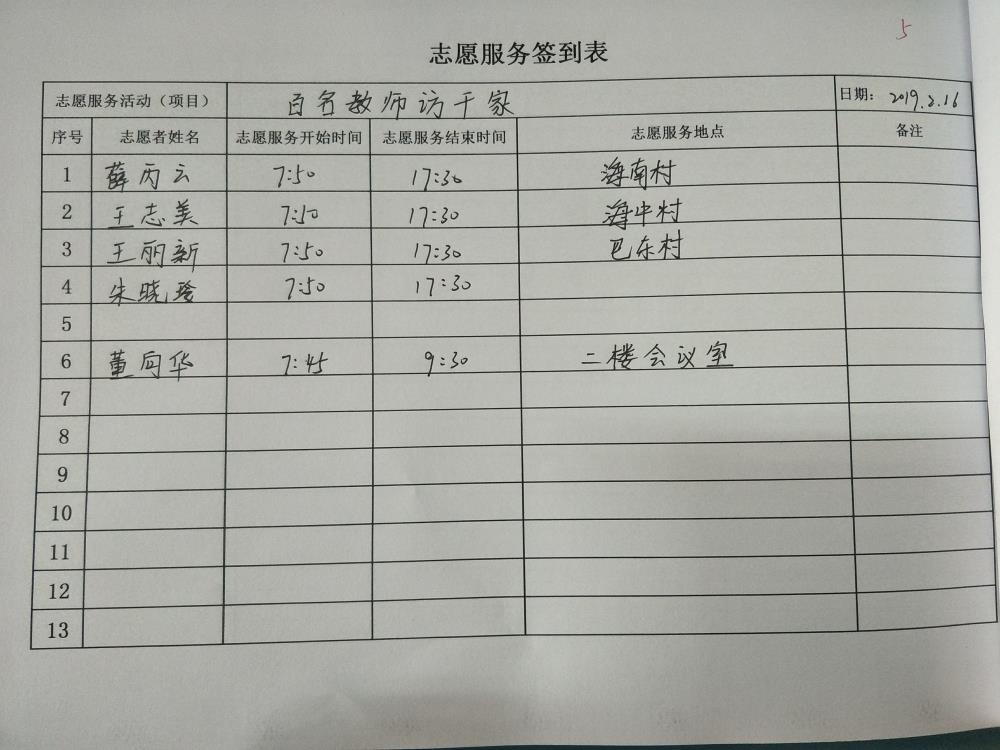 5
志愿服务签到表
志愿服务活动（项目） 百名教师访千家 日期: 2019.2.16
序号 志愿者姓名 志愿服务开始时间 志愿服务结束时间 志愿服务地点 备注
1 薛丙云 7:50 17:30 海南村
2 王志美 7:50 17:30 海中村
3 王丽新 7:50 17:30 巴东村
4 朱晓玲 7:50 17:30
5
6 董向华 7:45 9:30 二楼会议室
7
8
9
10
11
12
13